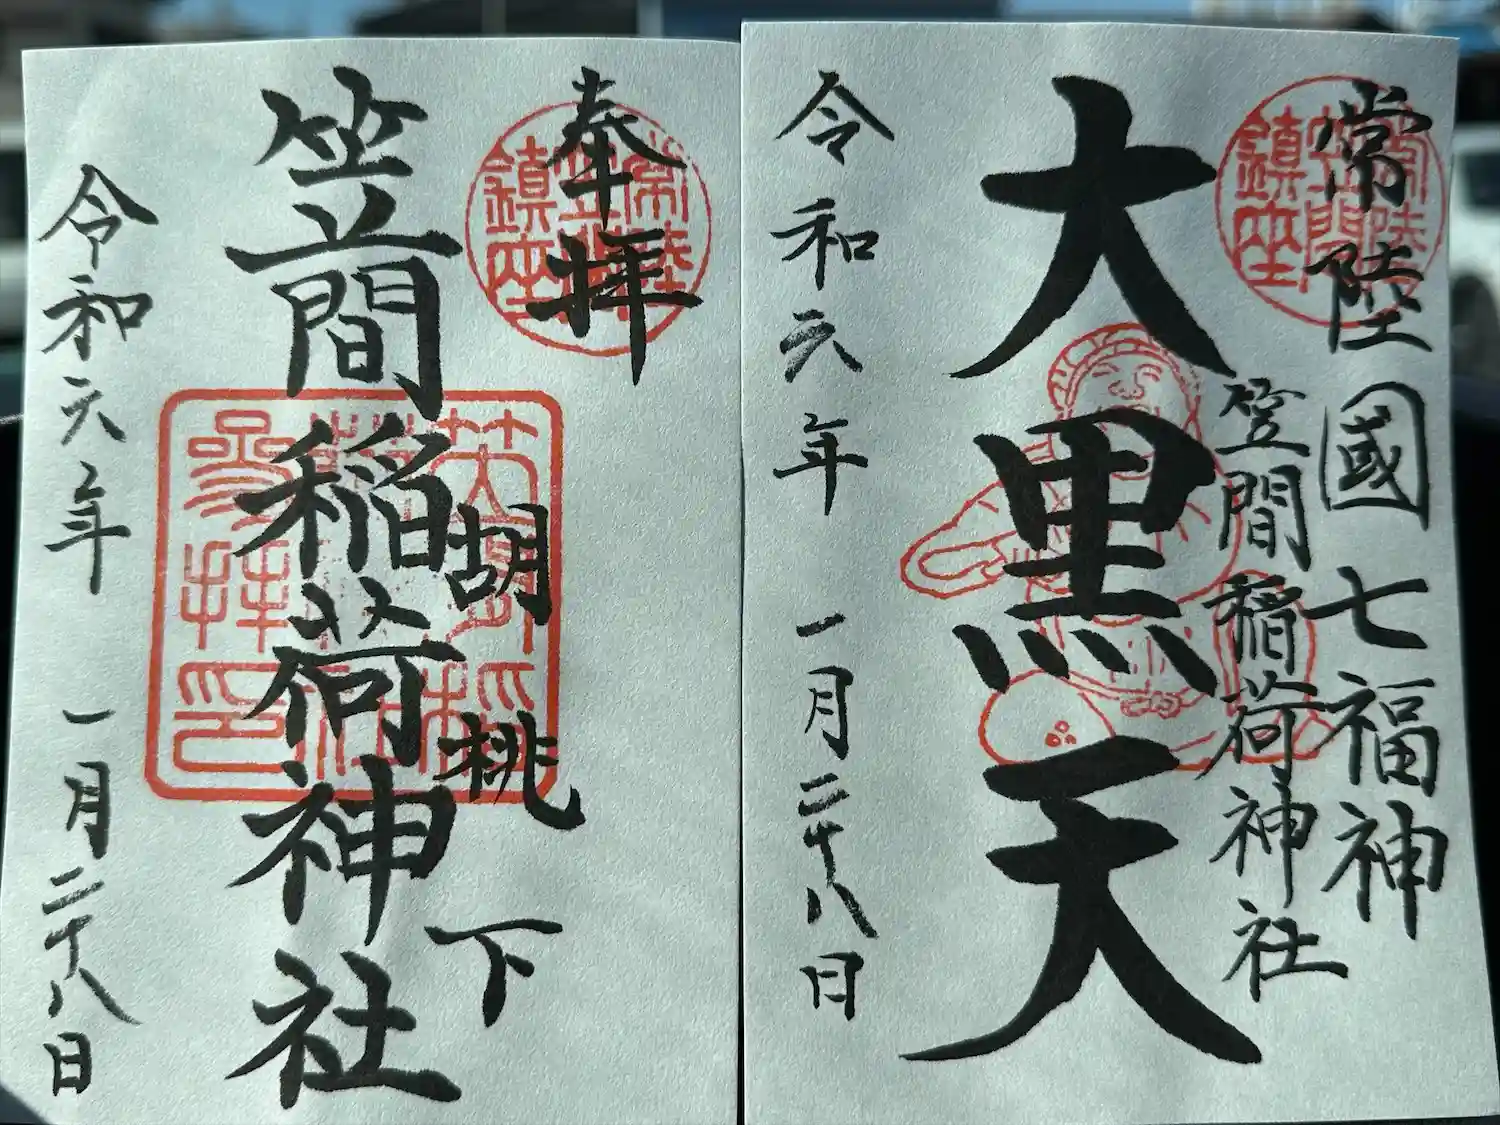 常陸國七福神
常陸笠間鎮座
笠間稲荷神社
大黒天
令和六年 一月二十八日
奉拝
常陸笠間鎮座
胡桃下
笠間稲荷神社
令和六年 一月二十八日